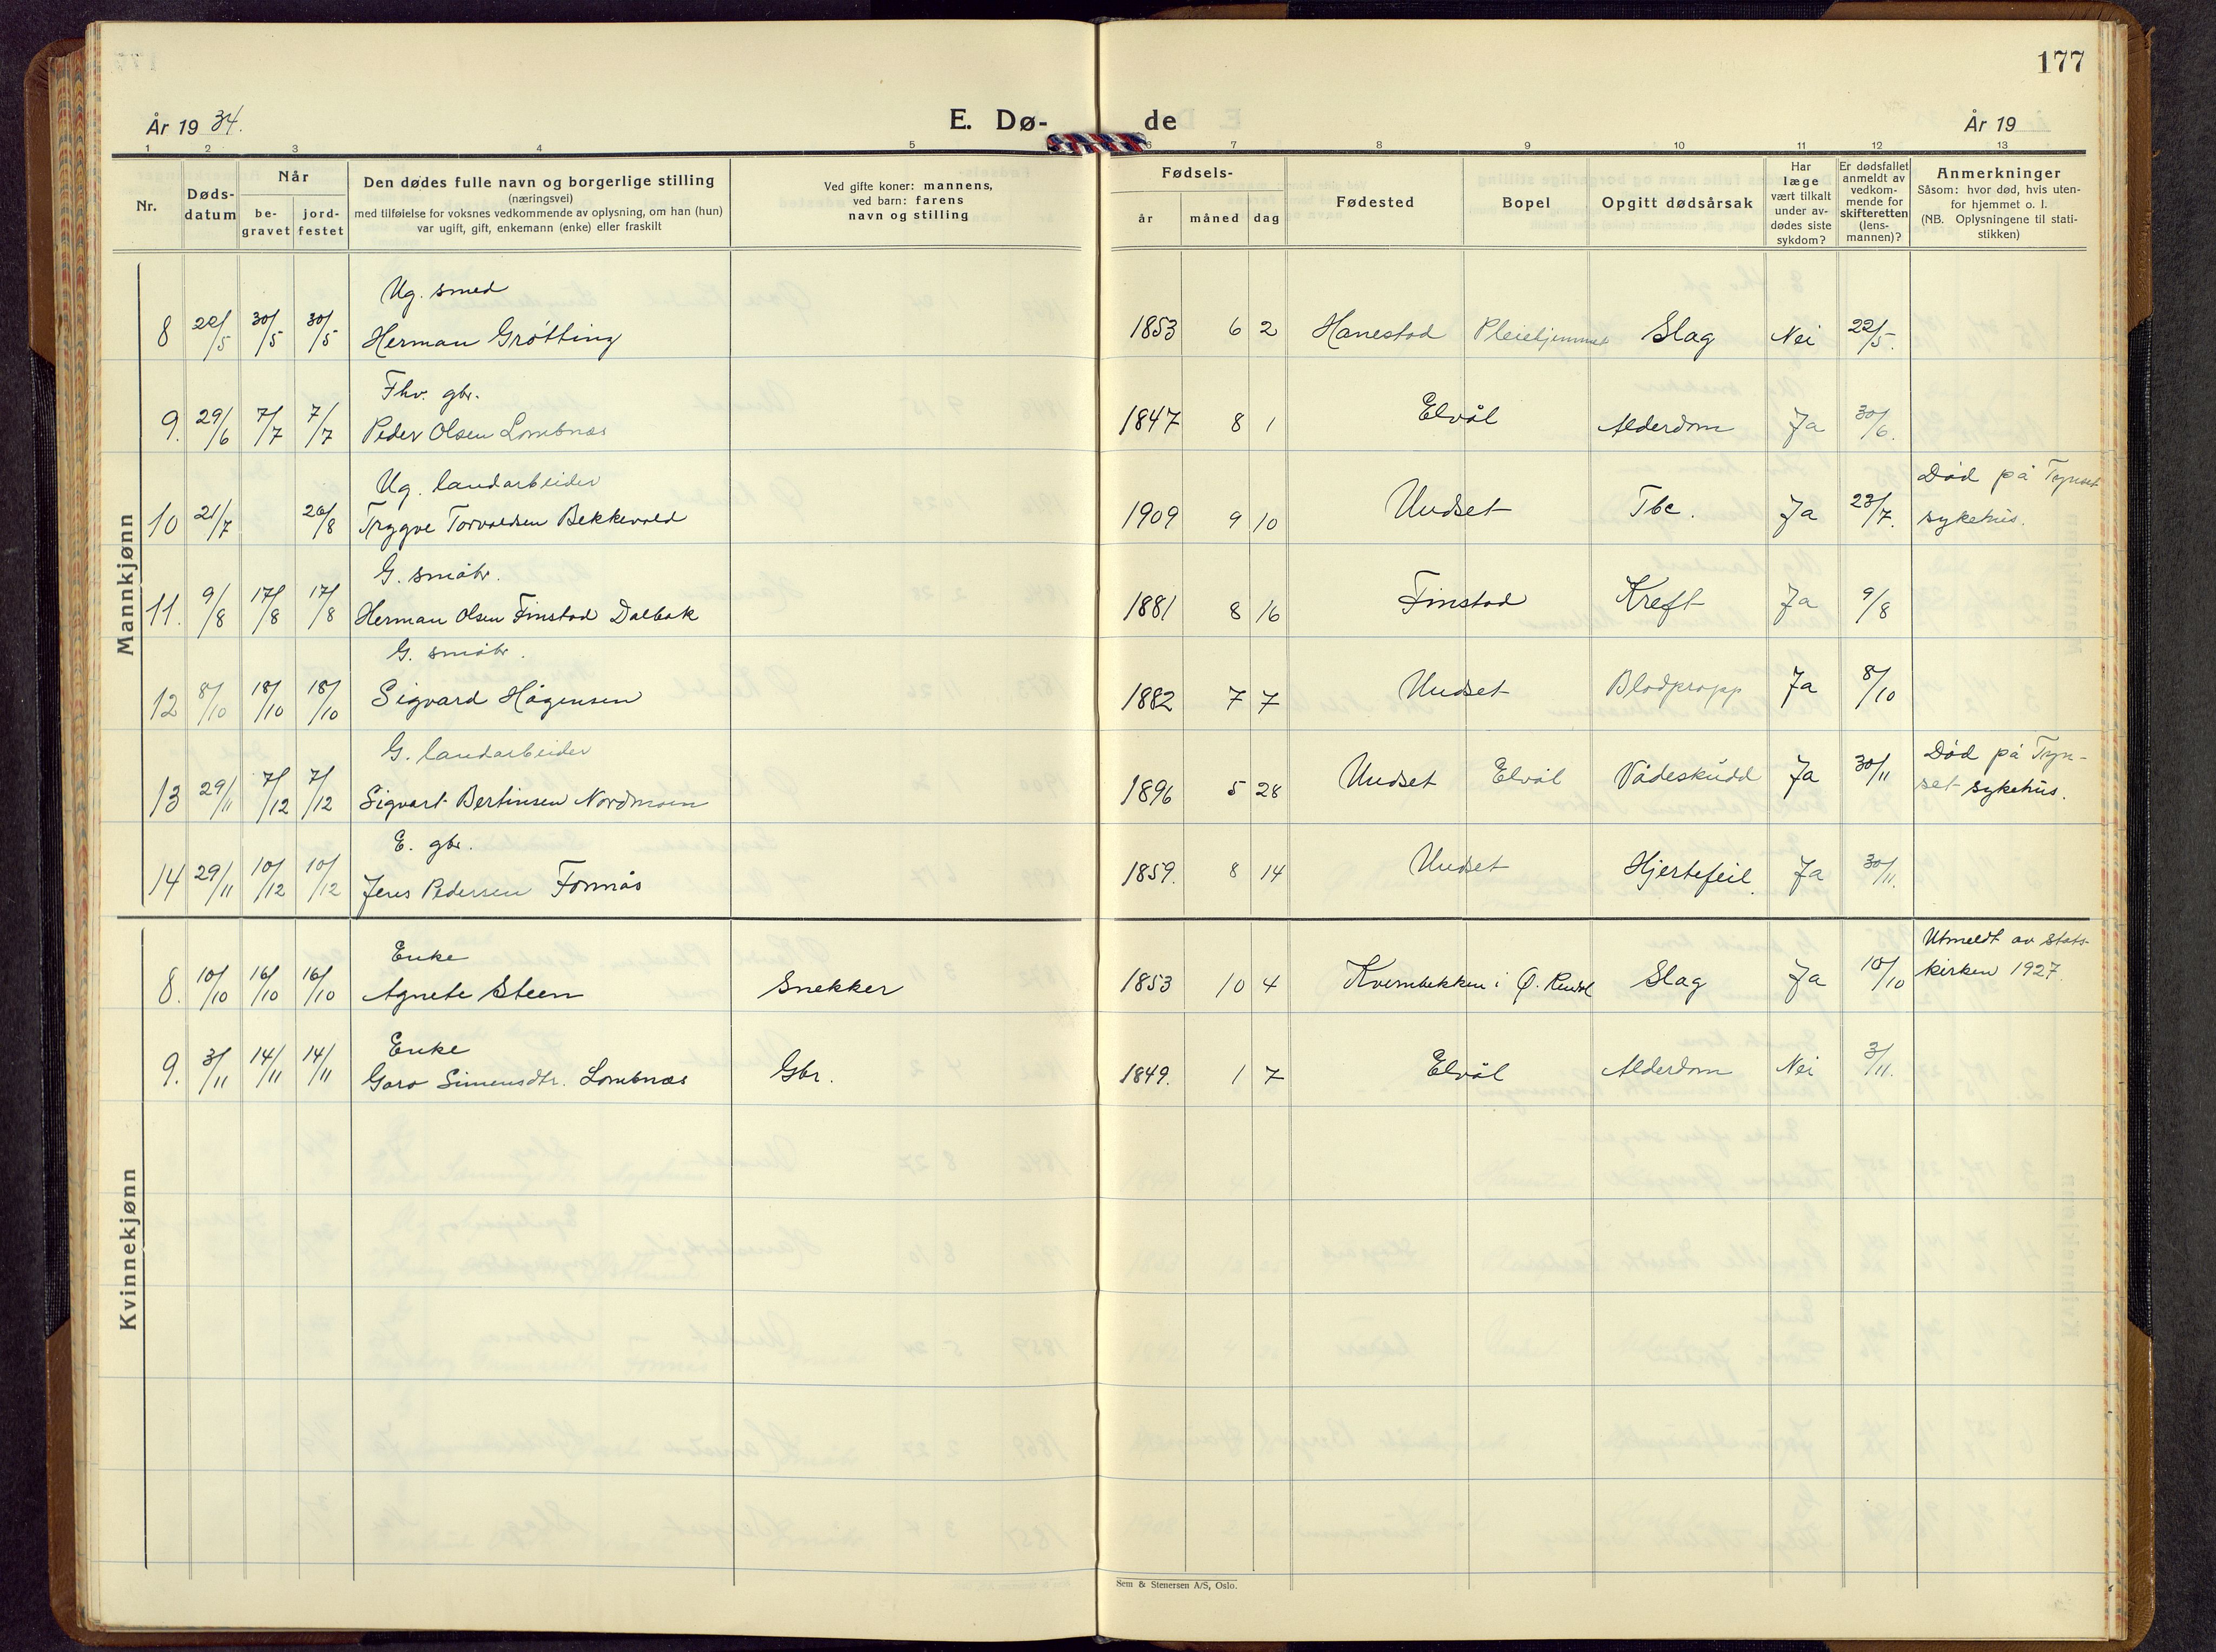 177
År 19 34.
E. Dø-
de
År 19
1 2 3 4 5 6 7 8 9 10 11 12 13
Nr.
Døds-
datum
Når
be-
gravet
jord-
festet
Den dødes fulle navn og borgerlige stilling
(næringsvei)
med tilføielse for voksnes vedkommende av oplysning, om han (hun)
var ugift, gift, enkemann (enke) eller fraskilt
Ved gifte koner: mannens,
ved barn: farens
navn og stilling
Fødsels-
år måned dag
Fødested
Bopel
Opgitt dødsårsak
Har
læge
vært tilkalt
under av-
dødes siste
sykdom?
Er dødsfallet
anmeldt av
vedkom-
mende for
skifteretten
(lens-
mannen)?
Anmerkninger
Såsom: hvor død, hvis uten-
for hjemmet o. l.
(NB. Oplysningene til stati-
stikken)
Mannkjønn
Ug. smed
8 30/5 30/5 Herman Grøtting 1853 6 2 Hanestad Pleiehjemmet Slag Nei 22/5.
Fhv. gbr.
9. 29/6 7/7 7/7 Peder Olsen Lombnæs 1847 8 1 Elvål Alderdom Ja 30/6.
Ug. landarbeider
Død på Tynset
10 21/7 26/8 Trygve Torvaldsen Bekkevold 1909 9 10 Undset Tbc. Ja 23/7. sykehus.
G. småbr.
11. 9/8 17/8 17/8 Herman Olsen Finstad Dalbak 1881 8 16 Finstad Kreft Ja 9/8
G. småbr.
12 8/10 18/10 18/10 Sigvard Hågensen 1882 7 7 Undset Blodpropp Ja 8/10
G. landarbeider
Død på Tyn-
13 29/11 7/12 7/12 Sigvart Bertinsen Nordmoen 1896 5 28 Undset Elvål Vådeskudd Ja 30/11 set sykehus.
E. gbr.
14 29/11 10/12 10/12 Jens Pedersen Fonnås 1859. 8 14 Undset Hjertefeil. Ja 30/11.
Kvinnekjønn
Enke
Utmeldt av stats-
8. 10/10 16/10 16/10 Agnete Steen Snekker 1853 10 4 Kvernbekken i Ø. Rendal Slag Ja 10/10 kirken 1927.
Enke
9. 3/11 14/11 14/11 Goro Simensdtr. Lombnæs Gbr. 1849. 1 7 Elvål Alderdom Nei 3/11.
Sem & Stenersen A/S, Oslo.